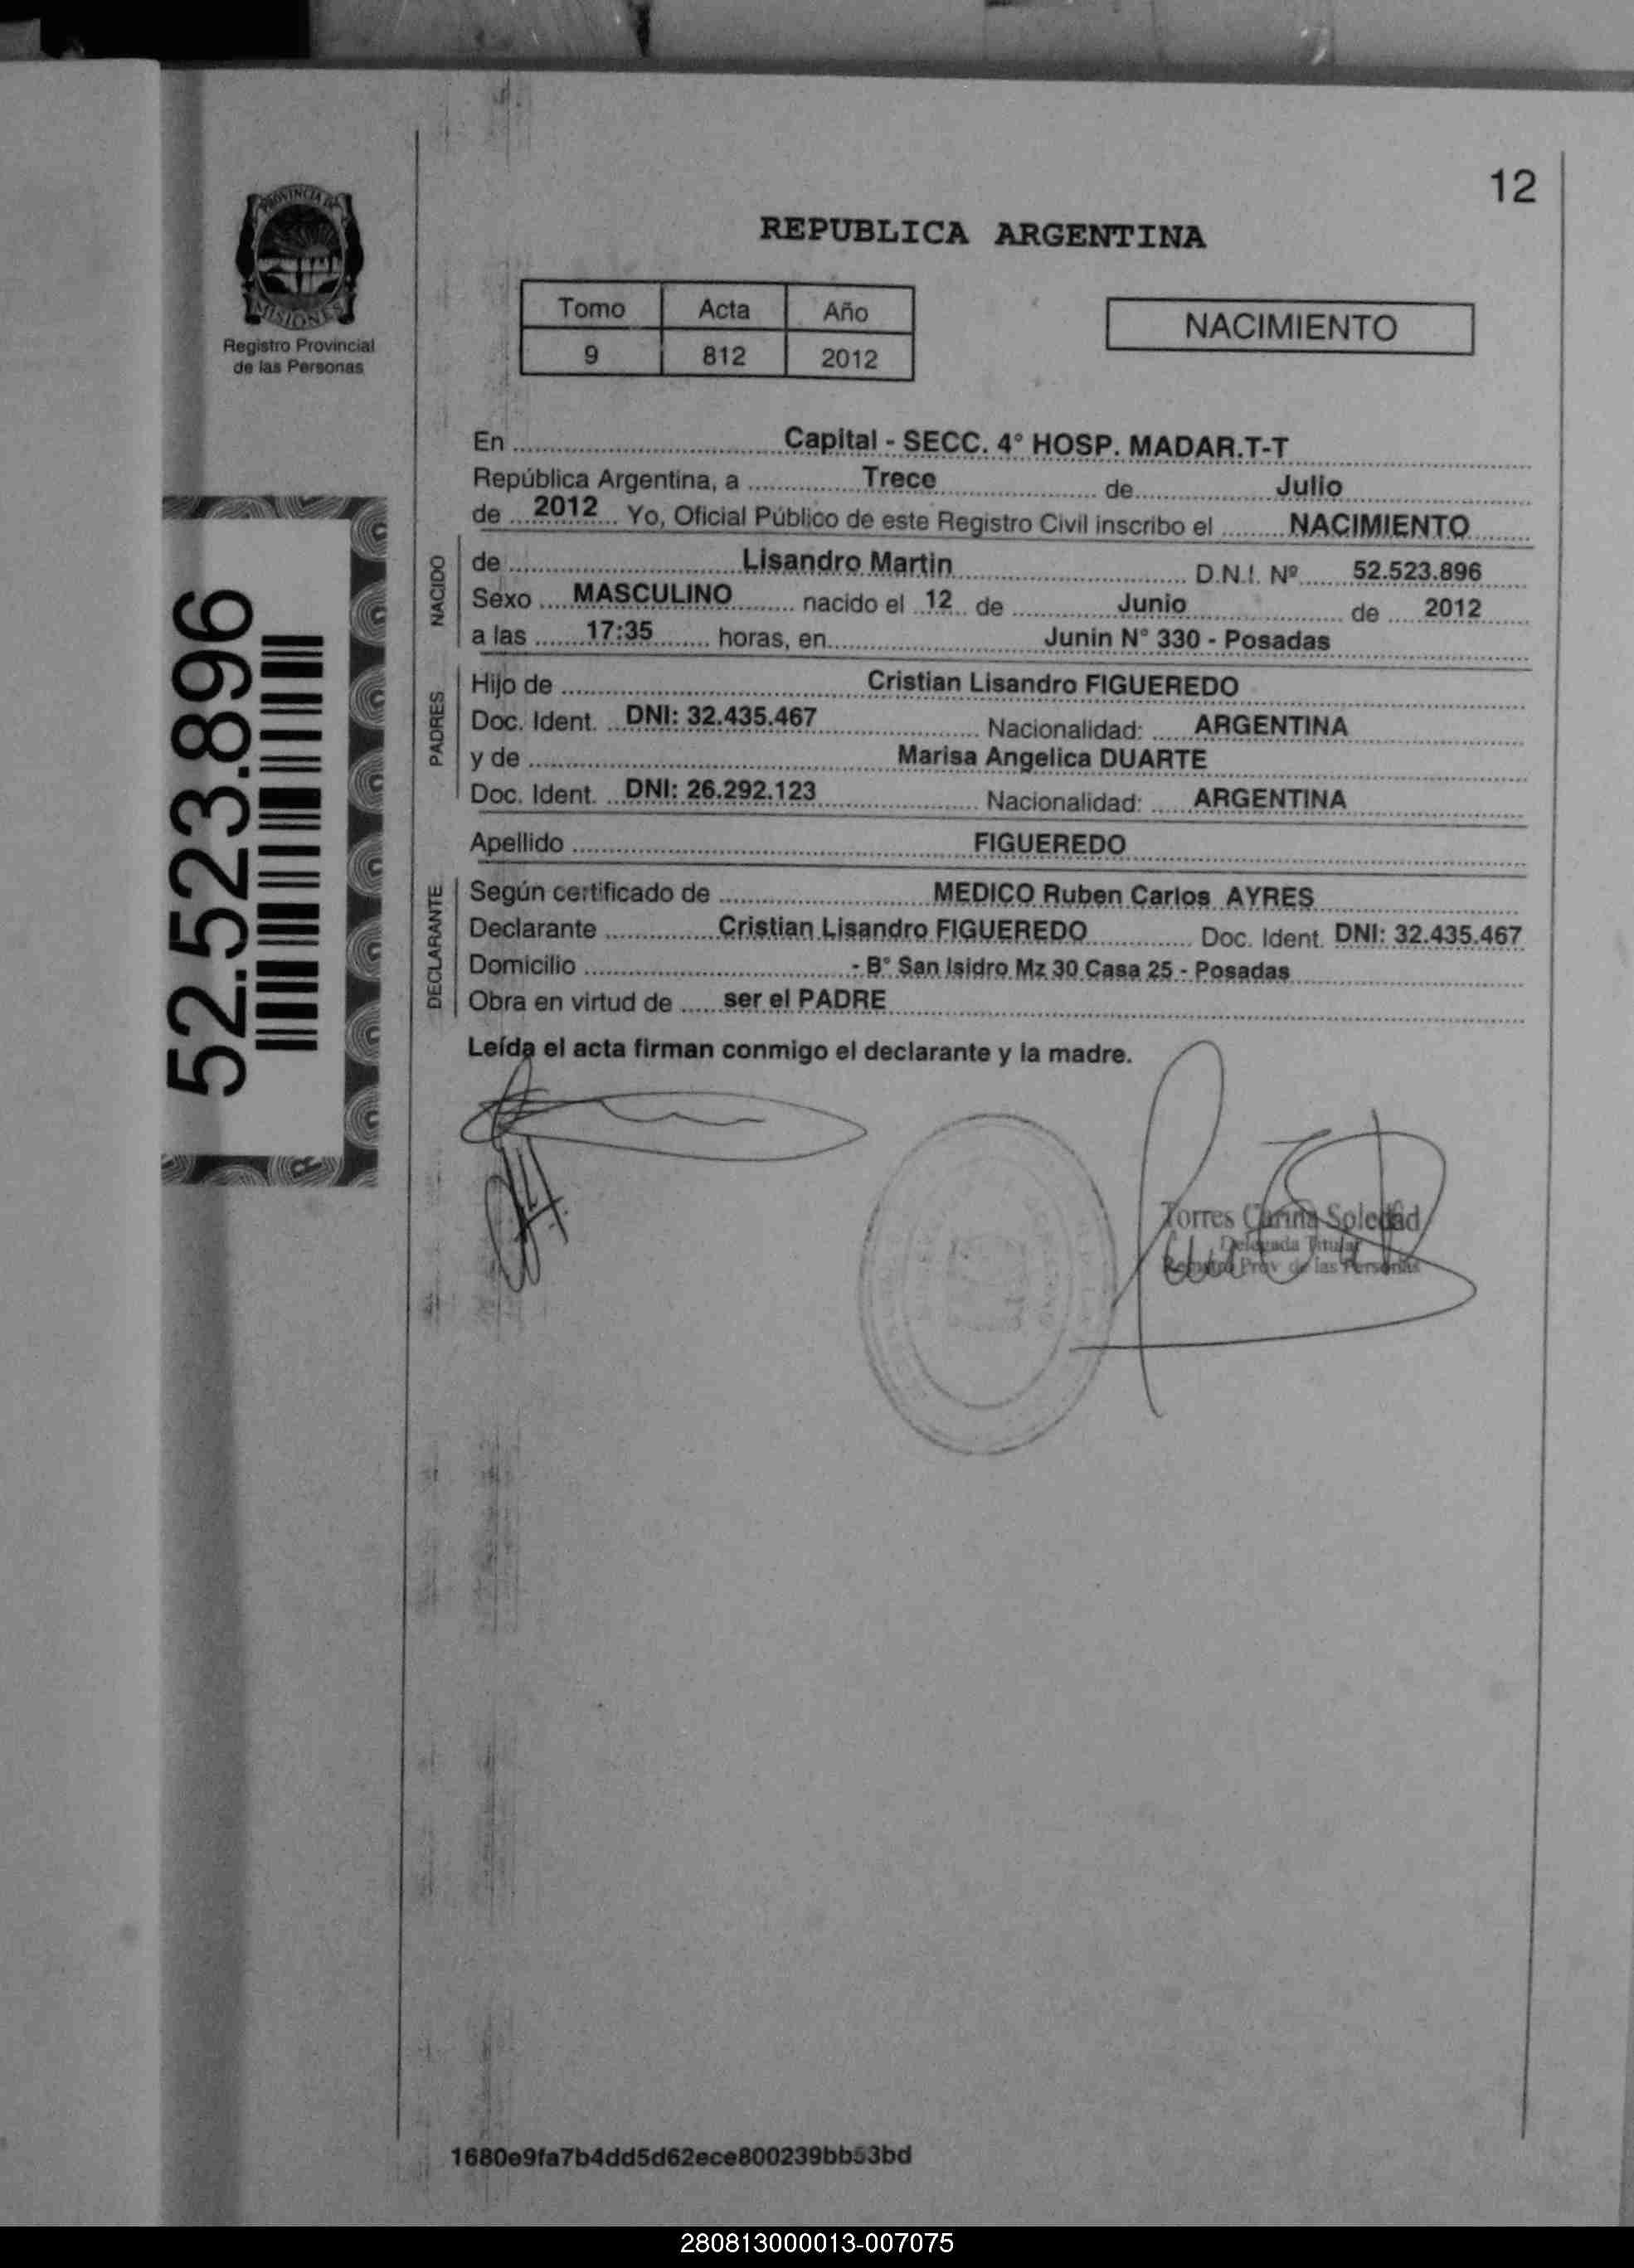 12
PROVINCIA DE
MISIONES
Registro Provincial
de las Personas
REPUBLICA ARGENTINA
Tomo Acta Año
9 812 2012
NACIMIENTO
En Capital - SECC. 4° HOSP. MADAR.T-T
República Argentina, a Trece de Julio
de 2012 Yo, Oficial Público de este Registro Civil inscribo el NACIMIENTO
NACIDO
de Lisandro Martin D.N.I. Nº 52.523.896
Sexo MASCULINO nacido el 12 de Junio de 2012
a las 17:35 horas, en Junin N° 330 - Posadas
PADRES
Hijo de Cristian Lisandro FIGUEREDO
Doc. Ident. DNI: 32.435.467 Nacionalidad: ARGENTINA
y de Marisa Angelica DUARTE
Doc. Ident. DNI: 26.292.123 Nacionalidad: ARGENTINA
Apellido FIGUEREDO
DECLARANTE
Según certificado de MEDICO Ruben Carlos AYRES
Declarante Cristian Lisandro FIGUEREDO Doc. Ident. DNI: 32.435.467
Domicilio - B° San Isidro Mz 30 Casa 25 - Posadas
Obra en virtud de ser el PADRE
Leída el acta firman conmigo el declarante y la madre.
52.523.896
Torres Carina Soledad
Delegada Titular
Registro Prov de las Personas
1680e9fa7b4dd5d62ece800239bb53bd
280813000013-007075